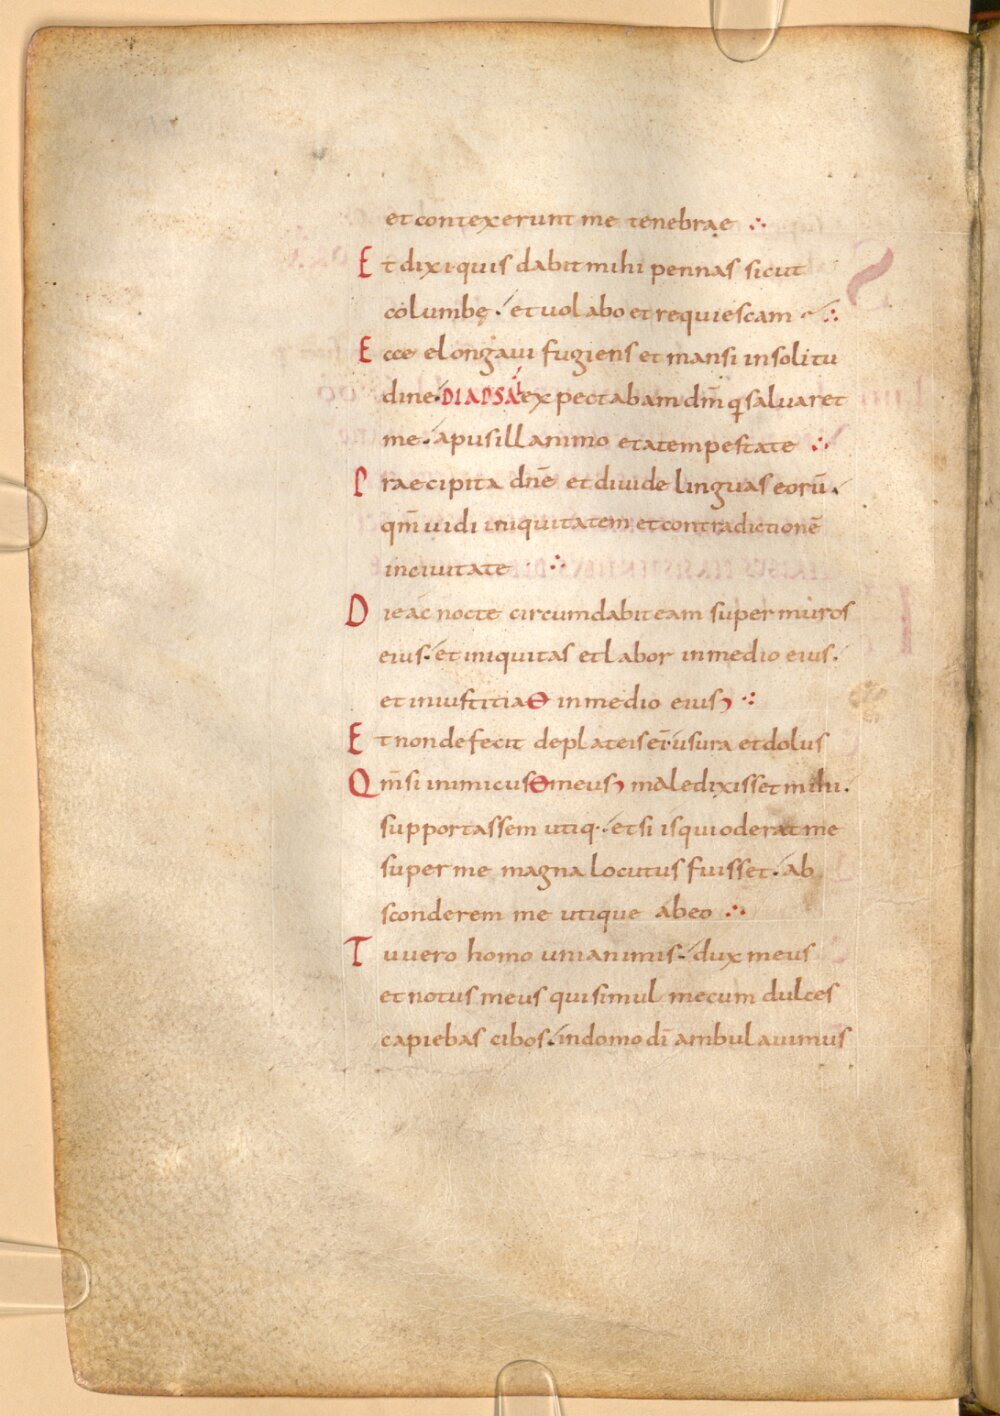 et contexerunt me tenebrae ∴
Et dixi quis dabit mihi pennas sicut
columbę. et uolabo et requiescam ∴
Ecce elongaui fugiens et mansi insolitu
dine. DIAPSAL expectabam dm̄ q salvaret
me. apusillanimo etatempestate ∴
Praecipita dnē et diuide linguas eorū.
qm̄ uidi iniquitatem et contradictionē
inciuitate ∴
Die ac nocte circumdabit eam super muros
eius. et iniquitas et labor inmedio eius.
et iniustitia ÷ inmedio eius : ∴
Et non defecit deplateis ei: usura et dolus
Qm̄ si inimicus ÷ meus : maledixisset mihi.
supportassem utiq. et si is qui oderat me
super me magna locutus fuisset. ab
sconderem me utique abeo ∴
Tu uero homo unianimis. dux meus
et notus meus qui simul mecum dulces
capiebas cibos. indomo dī ambulauimus